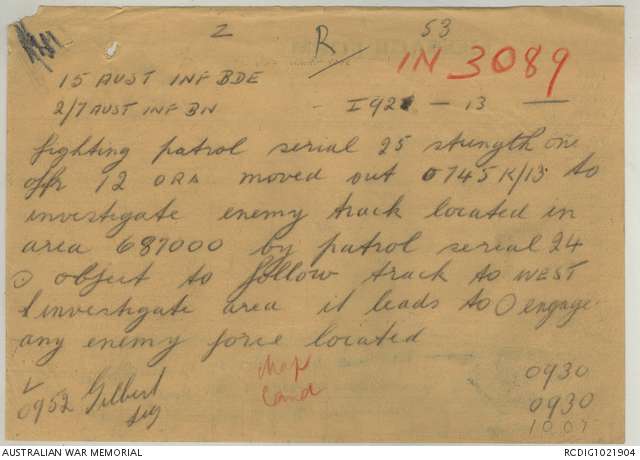 2 R 53
IN 3089
15 AUST INF BDE
2/7 AUST INF BN - I921 - 13 -
fighting patrol serial 25 strength one
offr 12 ORA moved out 0745K/13 to
investigate enemy track located in
area 687000 by patrol serial 24
object to follow track to WEST
& investigate area it leads to O engage
any enemy force located
0952 Gilbert
Sig
Map
Card
0930
0930
1007
AUSTRALIAN WAR MEMORIAL
RCDIG1021904